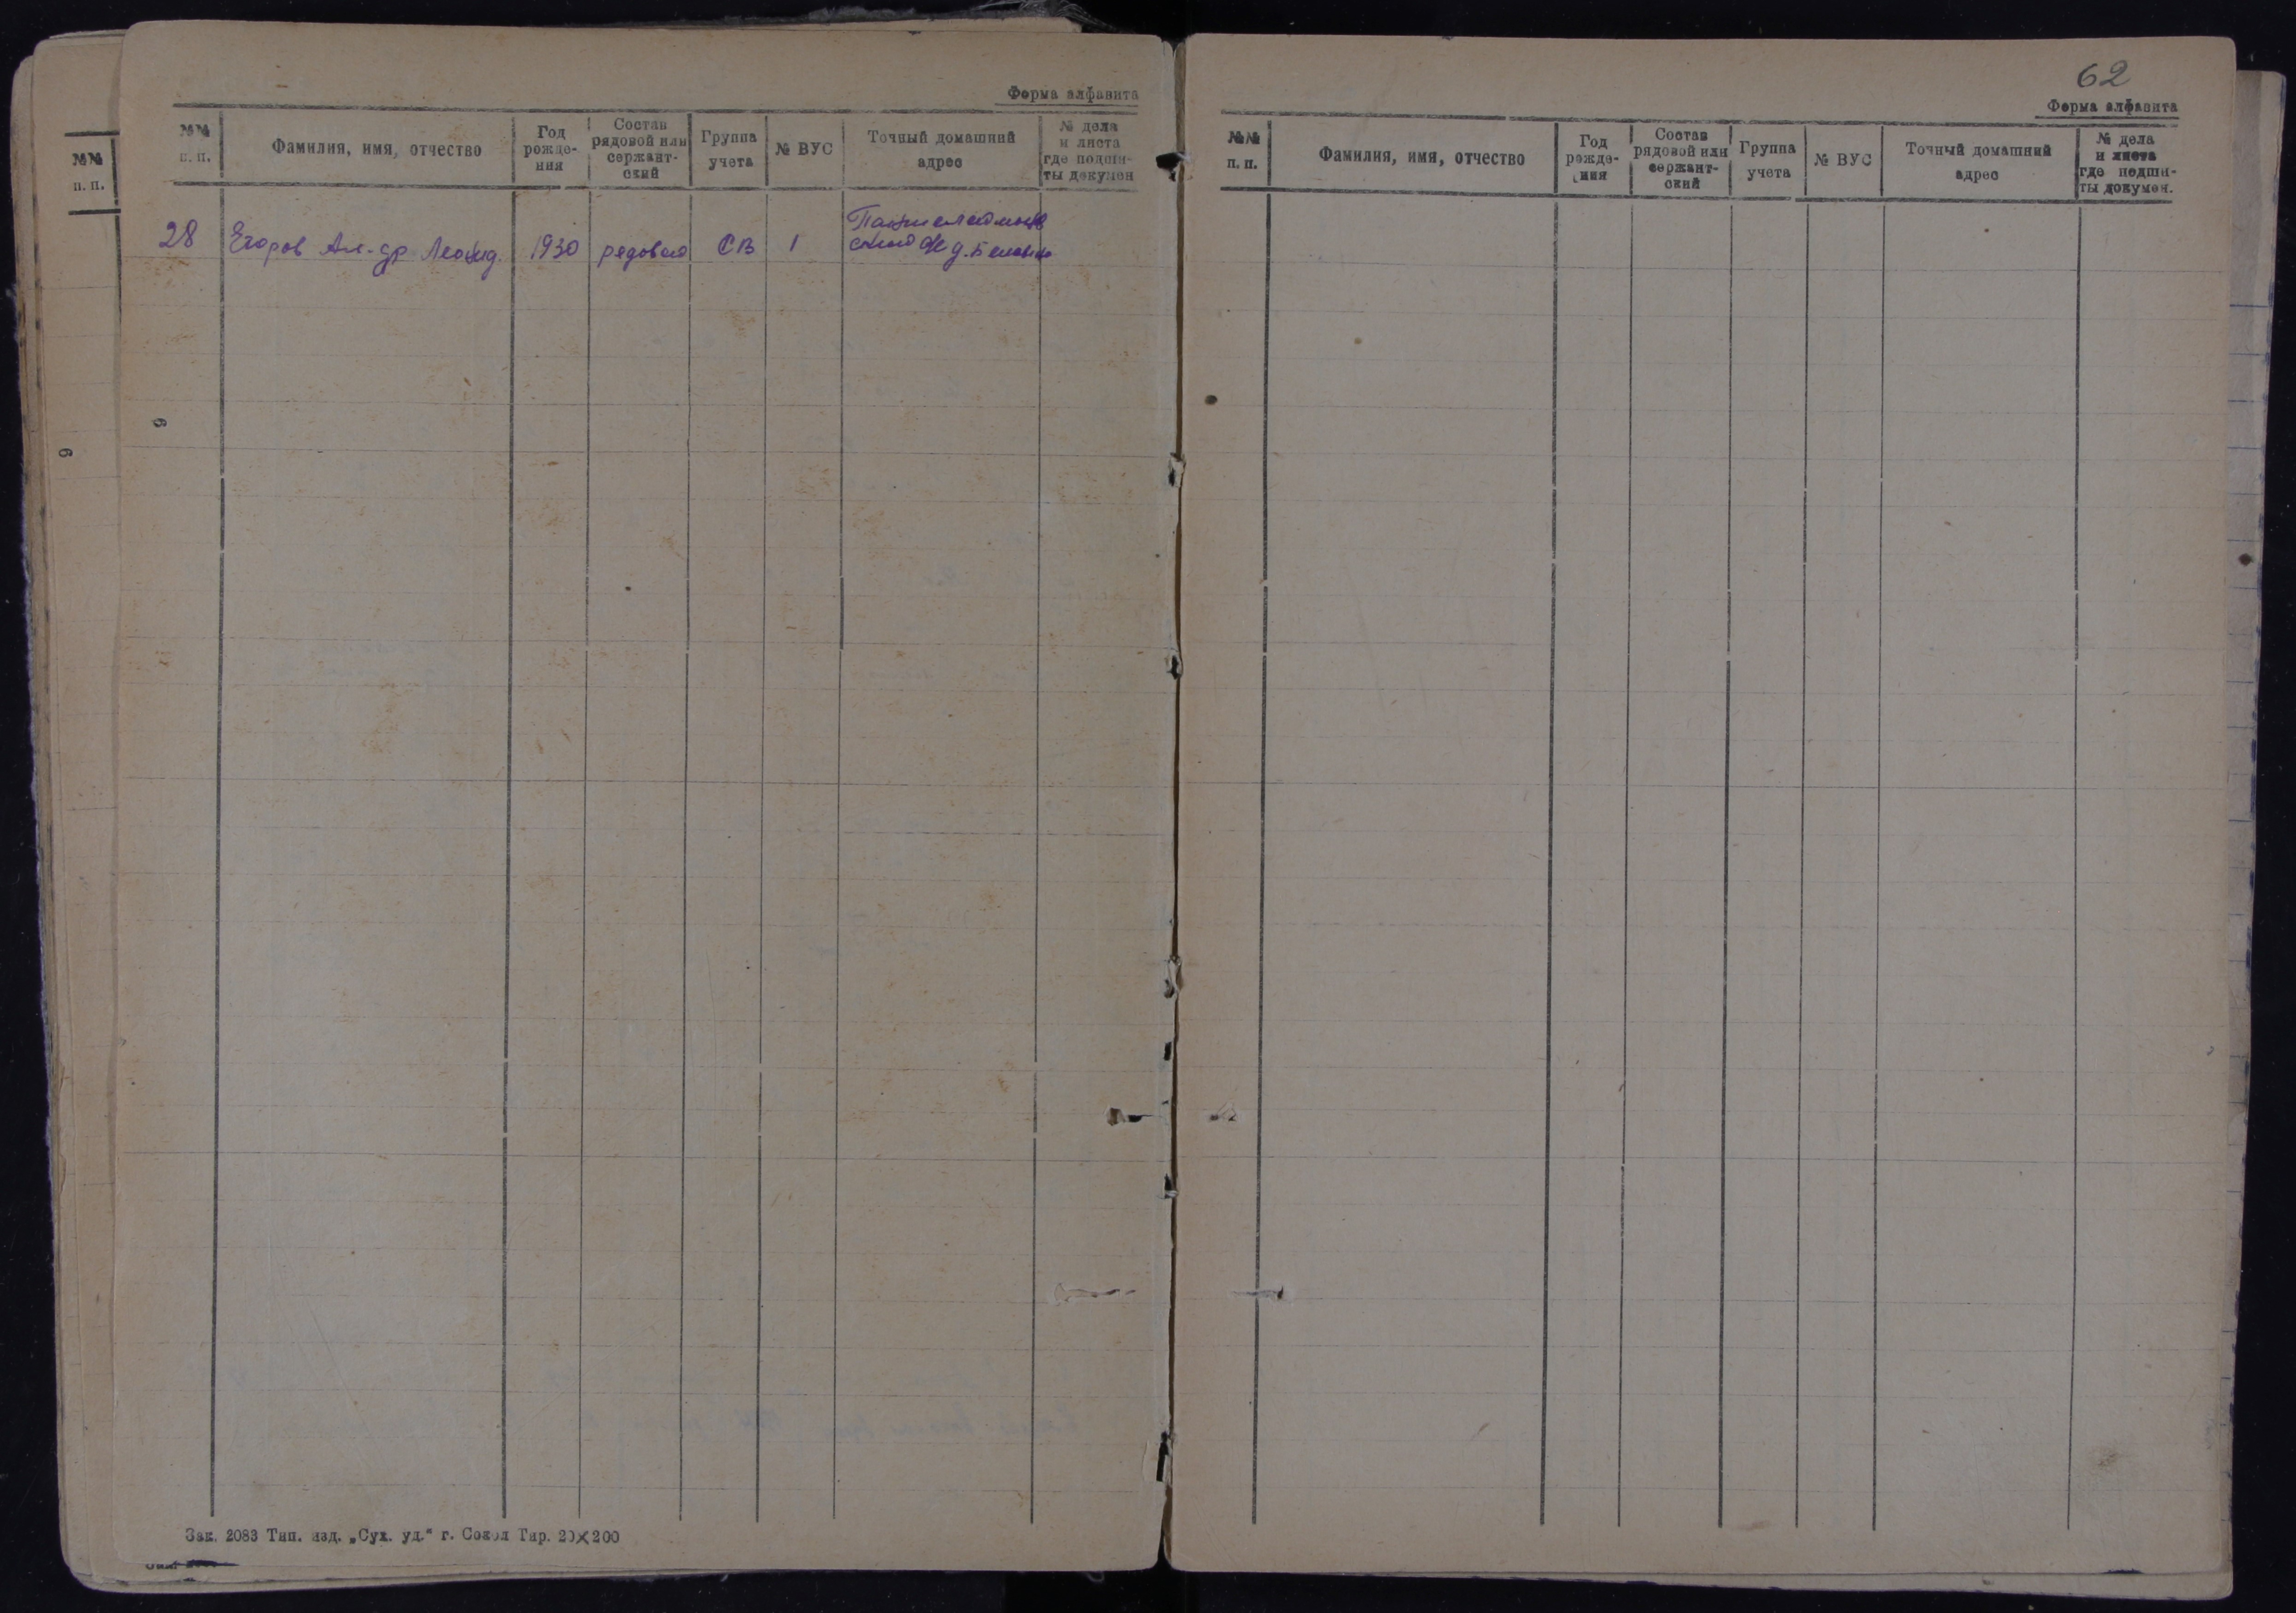 №№
п. п.
6
Форма алфавита
№№
п. п.
Фамилия, имя, отчество
Год
рожде-
ния
Состав
рядовой или
сержант-
ский
Группа
учета
№ ВУС
Точный домашний
адрес
№ дела
и листа
где подши-
ты докумен
28 Егоров Ал-др Леонид. 1930 рядовой СВ 1
6
Зак. 2083 Тип. изд. „Сух. уд.“ г. Сокол Тир. 20×200
62
Форма алфавита
№№
п. п.
Фамилия, имя, отчество
Год
рожде-
ния
Состав
рядовой или
сержант-
ский
Группа
учета
№ ВУС
Точный домашний
адрес
№ дела
и листа
где подши-
ты докумен.